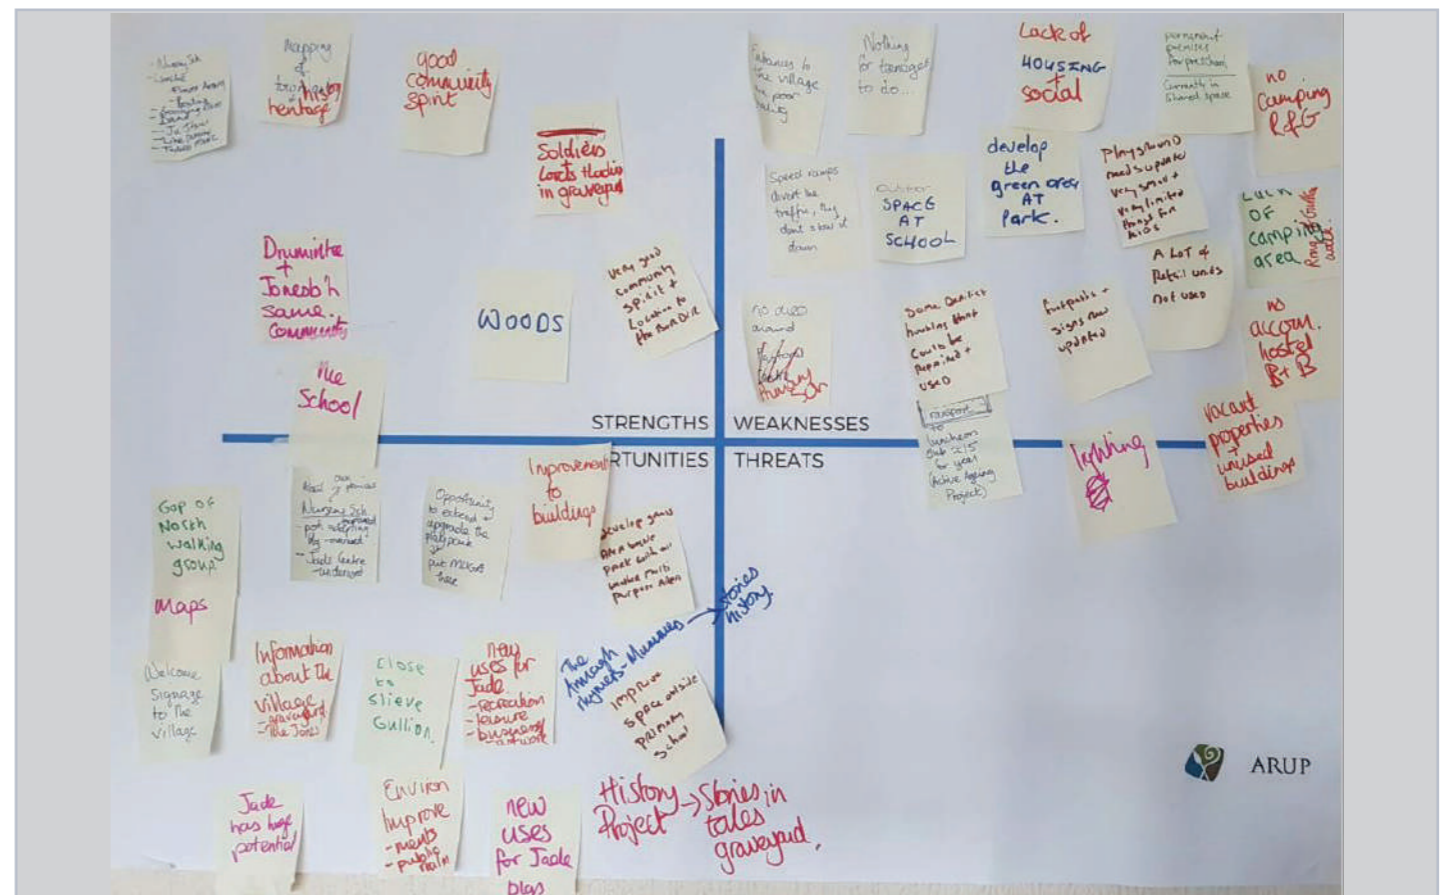 Mapping
of
history
heritage
good
community
spirit
Soldiers
in graveyard
Drumintee
+
Jonesb'h
same.
Community
WOODS
Very good
community
spirit +
Location to
the BORDER
The
School
Entrances to
the village
poor
Nothing
for teenagers
to do...
Lack of
HOUSING
+
social
permanent
premises
for preschool
Currently in
shared space
no
Camping
R&G
Speed ramps
divert the
traffic, they
dont slow it
down
outdoor
SPACE
AT
SCHOOL
develop
the
green area
AT
Park.
Playground
needs update
very small +
very limited
things for
kids
Lack
OF
camping
area
Ring of Gullion
walk.
A LOT of
Retail units
not used
around
Some Derelict
housing that
could be
repaired +
USED
footpaths +
signs need
updated
no
accom.
hostel
B+B
transport
to
luncheon
club
for year
(Active Ageing
Project)
lighting
Vacant
properties
+
unused
buildings
STRENGTHS
WEAKNESSES
RTUNITIES
THREATS
Gap of
North
walking
group
Maps
Need own premises
Nursery Sch
- Jade Centre
Opportunity
to extend +
upgrade the
playpark
or
put MUGA
here
Improvement
to
buildings
develop grass
Area beside
park with all
weather multi
purpose Area
The
Armagh
rhymers - Mummers → stories
history
Welcome
Signage
to the
village
Information
about the
Village
- graveyard
- the Jones
close
to
slieve
Gullion.
new
uses for
Jade
- recreation
- leisure
- business
- artwork
improve
space outside
primary
school
Jade
has huge
potential
Environ
Improve
- ments
- public
realm
new
uses
for Jade
bldg
History → Stories in
Project tales
graveyard.
ARUP